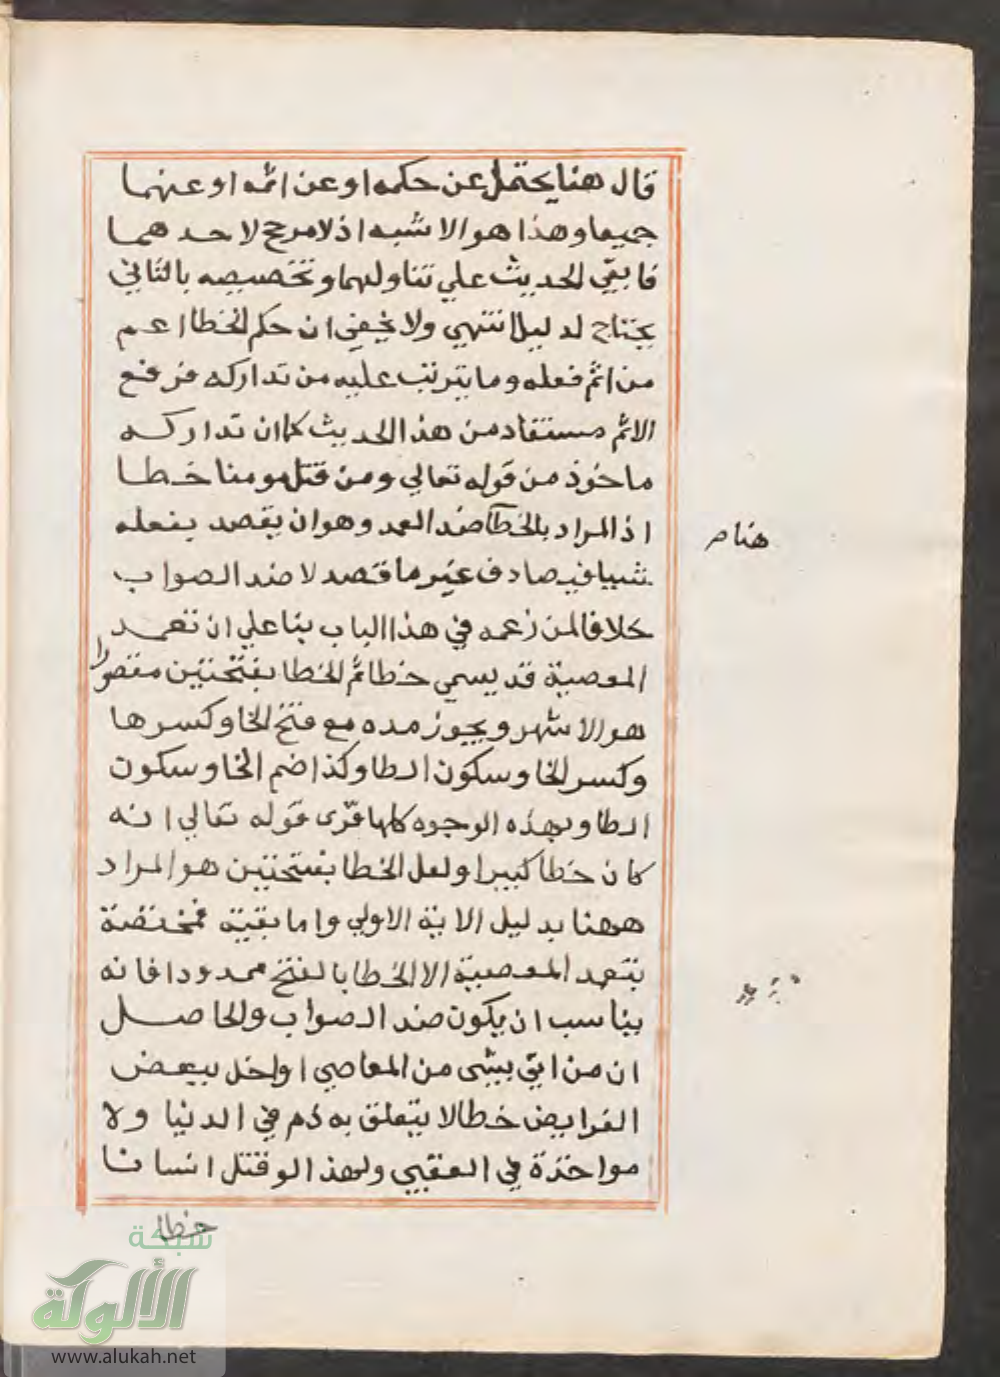 قال هنا يحتمل عن حكمه او عن اثمه او عنهما
جميعا وهذا هو الاشبه اذ لا مرجح لاحدهما
فابقي الحديث علي تناولهما وتخصيصه بالثاني
يحتاج لدليل انتهي ولا يخفي ان حكم الخطا اعم
من اثم فعله وما يترتب عليه من تداركه فرفع
الاثم مستفاد من هذا الحديث كما ان تداركه
ماخوذ من قوله تعالي ومن قتل مومنا خطا
اذ المراد بالخطا ضد العمد وهو ان يقصد بفعله
شيا فيصادف غير ما قصد لا ضد الصواب
خلافا لمن زعمه في هذا الباب بنا علي ان تعمد
المعصية قد يسمي خطا ثم الخطا بفتحتين مقصورا
هو الاشهر ويجوز مده مع فتح الخا وكسرها
وكسر الخا وسكون الطا وكذا ضم الخا وسكون
الطا وبهذه الوجوه كلها قرى قوله تعالي انه
كان خطا كبيرا ولعل الخطا بفتحتين هو المراد
ههنا بدليل الاية الاولي واما بقية فمختصة
بتعمد المعصية الا الخطا بالفتح ممدودا فانه
يناسب ان يكون ضد الصواب والحاصل
ان من اتي بشى من المعاصي او اخل ببعض
الفرايض خطا لا يتعلق به ذم في الدنيا ولا
مواخذة في العقبي ولهذا لو قتل انسانا
خطا
هنا
شبكة
الألوكة
www.alukah.net